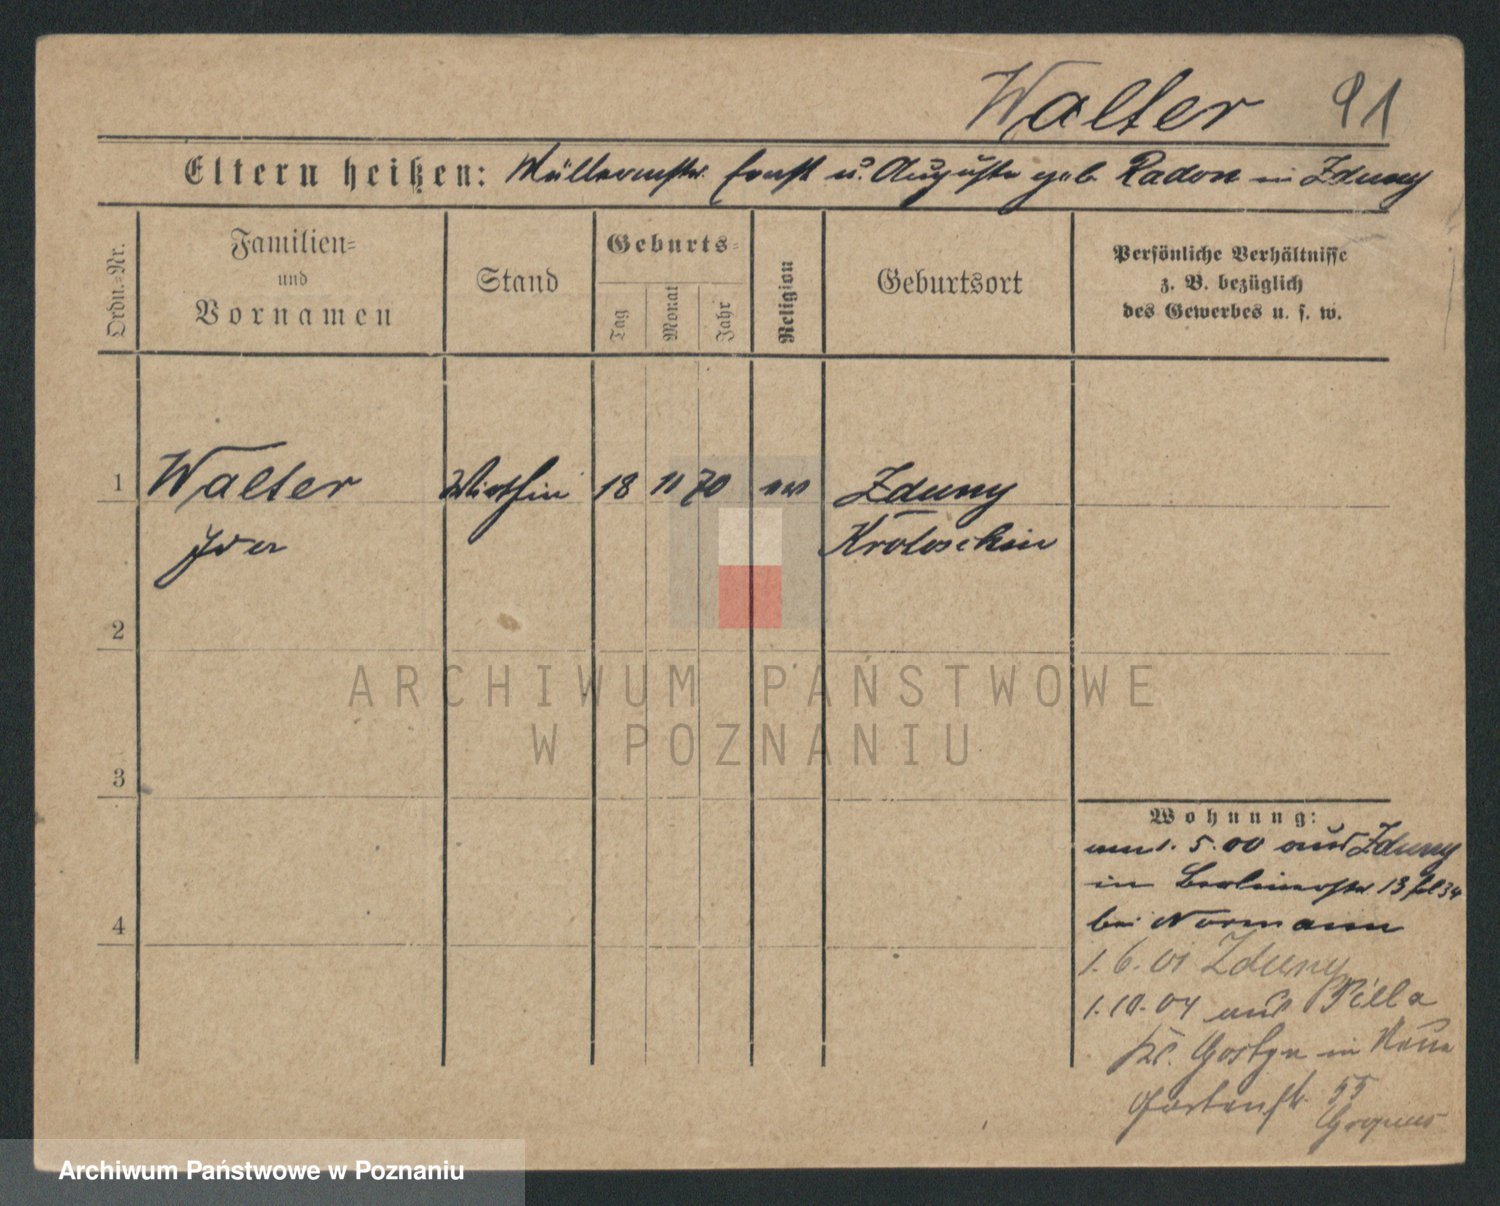 Walter 91
Eltern heißen: Müllermstr. Ernst u. Auguste geb. Radon in Zduny
Ordn.=Nr.
Familien=
und
Vornamen
Stand
Geburts=
Tag
Monat
Jahr
Religion
Geburtsort
Persönliche Verhältnisse
z. B. bezüglich
des Gewerbes u. s. w.
1 Walter Wirthin 18 11 70 ev Zduny
Ida Krotoschin
2
3
4
Wohnung:
am 1. 5. 00 aus Zduny
in Berlinerstr. 13
bei Normann
1. 6. 01 Zduny
1. 10. 04 aus Pilla
Kr. Gostyn in Neue
Gartenstr. 55
ARCHIWUM PAŃSTWOWE
W POZNANIU
Archiwum Państwowe w Poznaniu